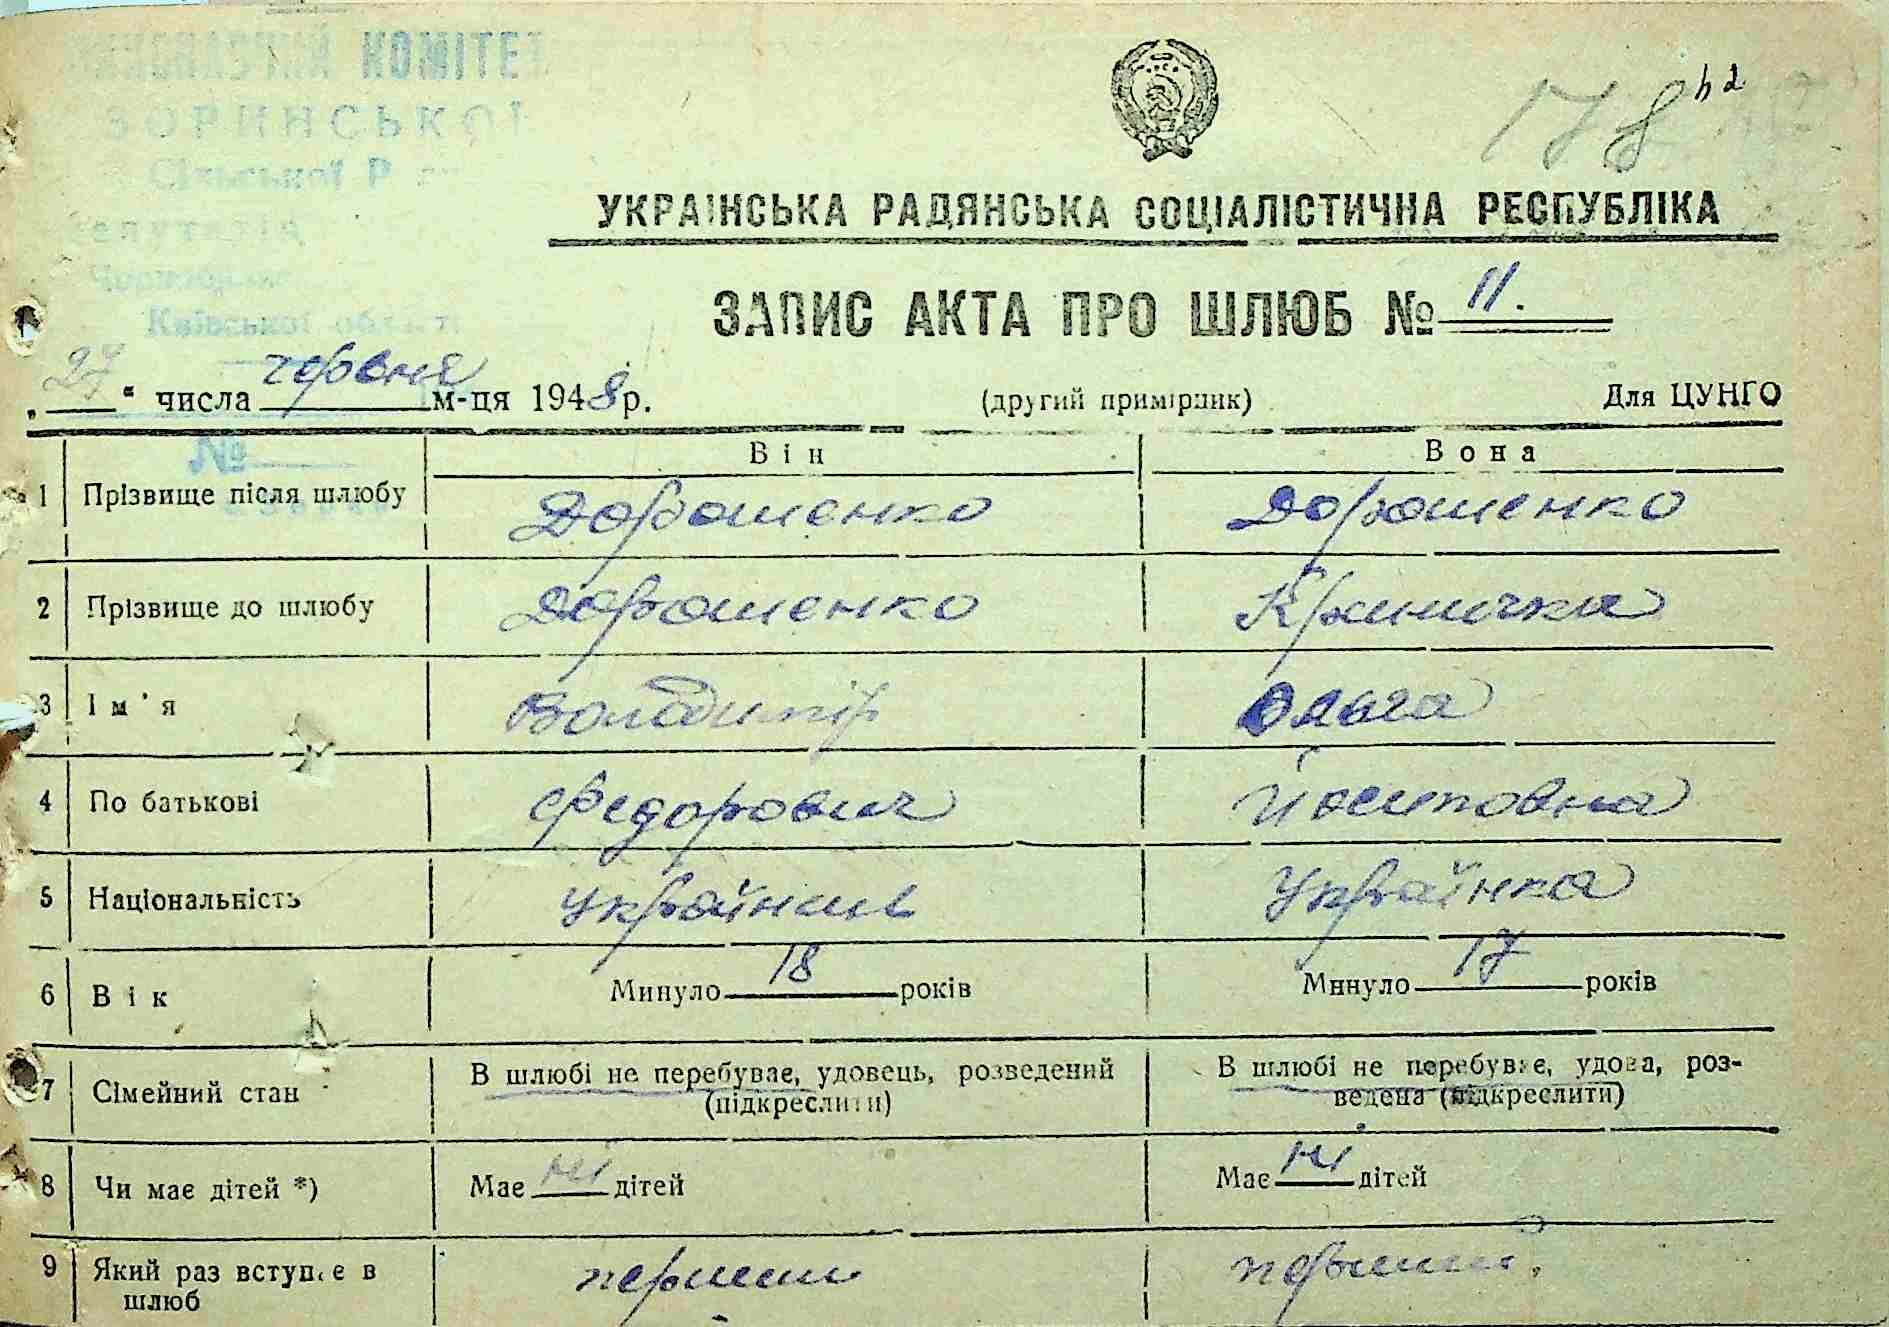 ВИКОНАВЧИЙ КОМІТЕТ
ЗОРИНСЬКОЇ
Сільської Р
депутатів
Київської області
№
178
УКРАЇНСЬКА РАДЯНСЬКА СОЦІАЛІСТИЧНА РЕСПУБЛІКА
ЗАПИС АКТА ПРО ШЛЮБ № 11.
„27“ числа червня м-ця 1948 р. (другий примірник) Для ЦУНГО
Він Вона
1 Прізвище після шлюбу Дорошенко Дорошенко
2 Прізвище до шлюбу Дорошенко Криничка
3 Ім'я Володимір Ольга
4 По батькові Федорович Йосиповна
5 Національність Українець Українка
6 Вік Минуло 18 років Минуло 17 років
7 Сімейний стан В шлюбі не перебуває, удовець, розведений (підкреслити) В шлюбі не перебуває, удова, роз-
ведена (підкреслити)
8 Чи має дітей *) Має ні дітей Має ні дітей
9 Який раз вступає в перший первший.
шлюб